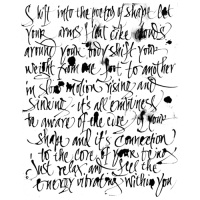 Shift into the postures of shape let
your arms float like clouds
around your body shift your
weight from one foot to another
in slow motion rising and
sinking it's all emptiness
be aware of the core of your
shape and it's connection
to the core of your being
just relax and feel the
energy vibrating within you